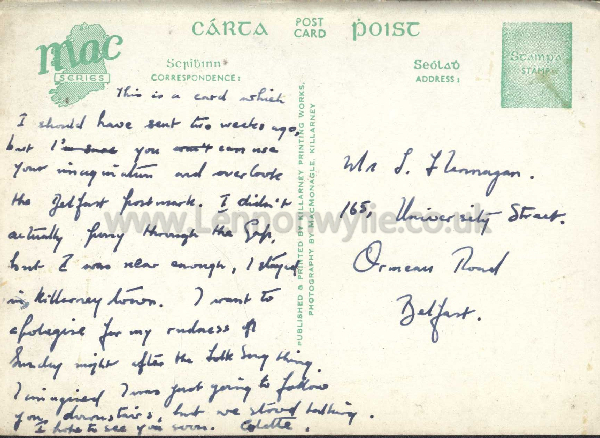 mac
SERIES
CÁRTA POST CARD POIST
Scríbinn
CORRESPONDENCE:
Seólaḋ
ADDRESS:
Stampa
STAMP
This is a card which
I should have sent two weeks ago,
but I'm sure you won't can use
your imagination and overlook
the Belfast postmark. I didn't
actually pony through the Gap,
but I was near enough, I stayed
in Killarney town. I want to
apologise for my rudness of
Sunday night after the Folk Song thing.
I imagined I was just going to follow
you downstairs, but we stood talking.
I hope to see you soon. Colette.
PUBLISHED & PRINTED BY KILLARNEY PRINTING WORKS,
PHOTOGRAPHY BY MACMONAGLE, KILLARNEY
Mr S. Flannagan.
165, University Street.
Ormeau Road
Belfast.
www.Lennonwylie.co.uk